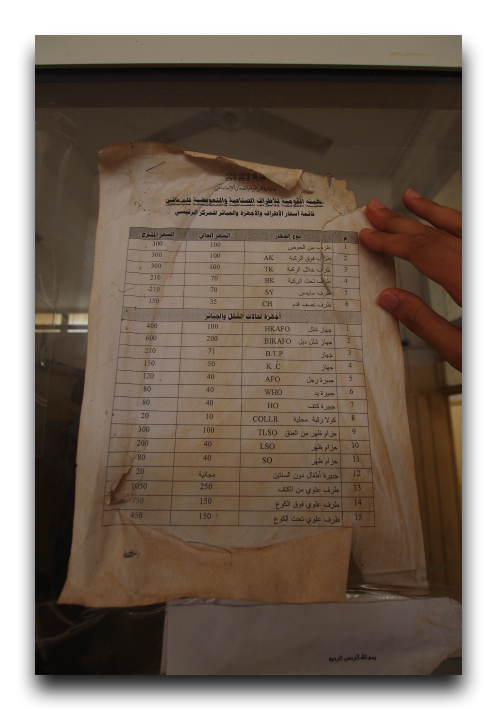 الهيئة القومية للأطراف الصناعية والتعويضية للمعاقين
قائمة أسعار الأطراف والأجهزة والجبائر للمركز الرئيسي
م نوع الجهاز السعر الحالي السعر المقترح
1 طرف من الحوض 100 300
2 طرف فوق الركبة AK 100 300
3 طرف خلال الركبة TK 100 300
4 طرف تحت الركبة BK 70 210
5 طرف سايمس SY 70 210
6 طرف نصف قدم CH 35 150
أجهزة لحالات الشلل والجبائر
1 جهاز شلل HKAFO 100 400
2 جهاز شلل دبل BIKAFO 200 600
3 جهاز B.T.P 71 210
4 جهاز K .C 50 150
5 جبيرة رجل AFO 40 120
6 جبيرة يد WHO 40 80
7 جبيرة كتف HO 40 80
8 كولا رقبة محلية COLLR 10 20
9 حزام ظهر من العنق TLSO 100 300
10 حزام ظهر LSO 40 200
11 حزام ظهر SO 40 80
12 جبيرة أطفال دون السنتين مجانية 20
13 طرف علوي من الكتف 250 1050
14 طرف علوي فوق الكوع 150 750
15 طرف علوي تحت الكوع 150 450
بسم الله الرحمن الرحيم